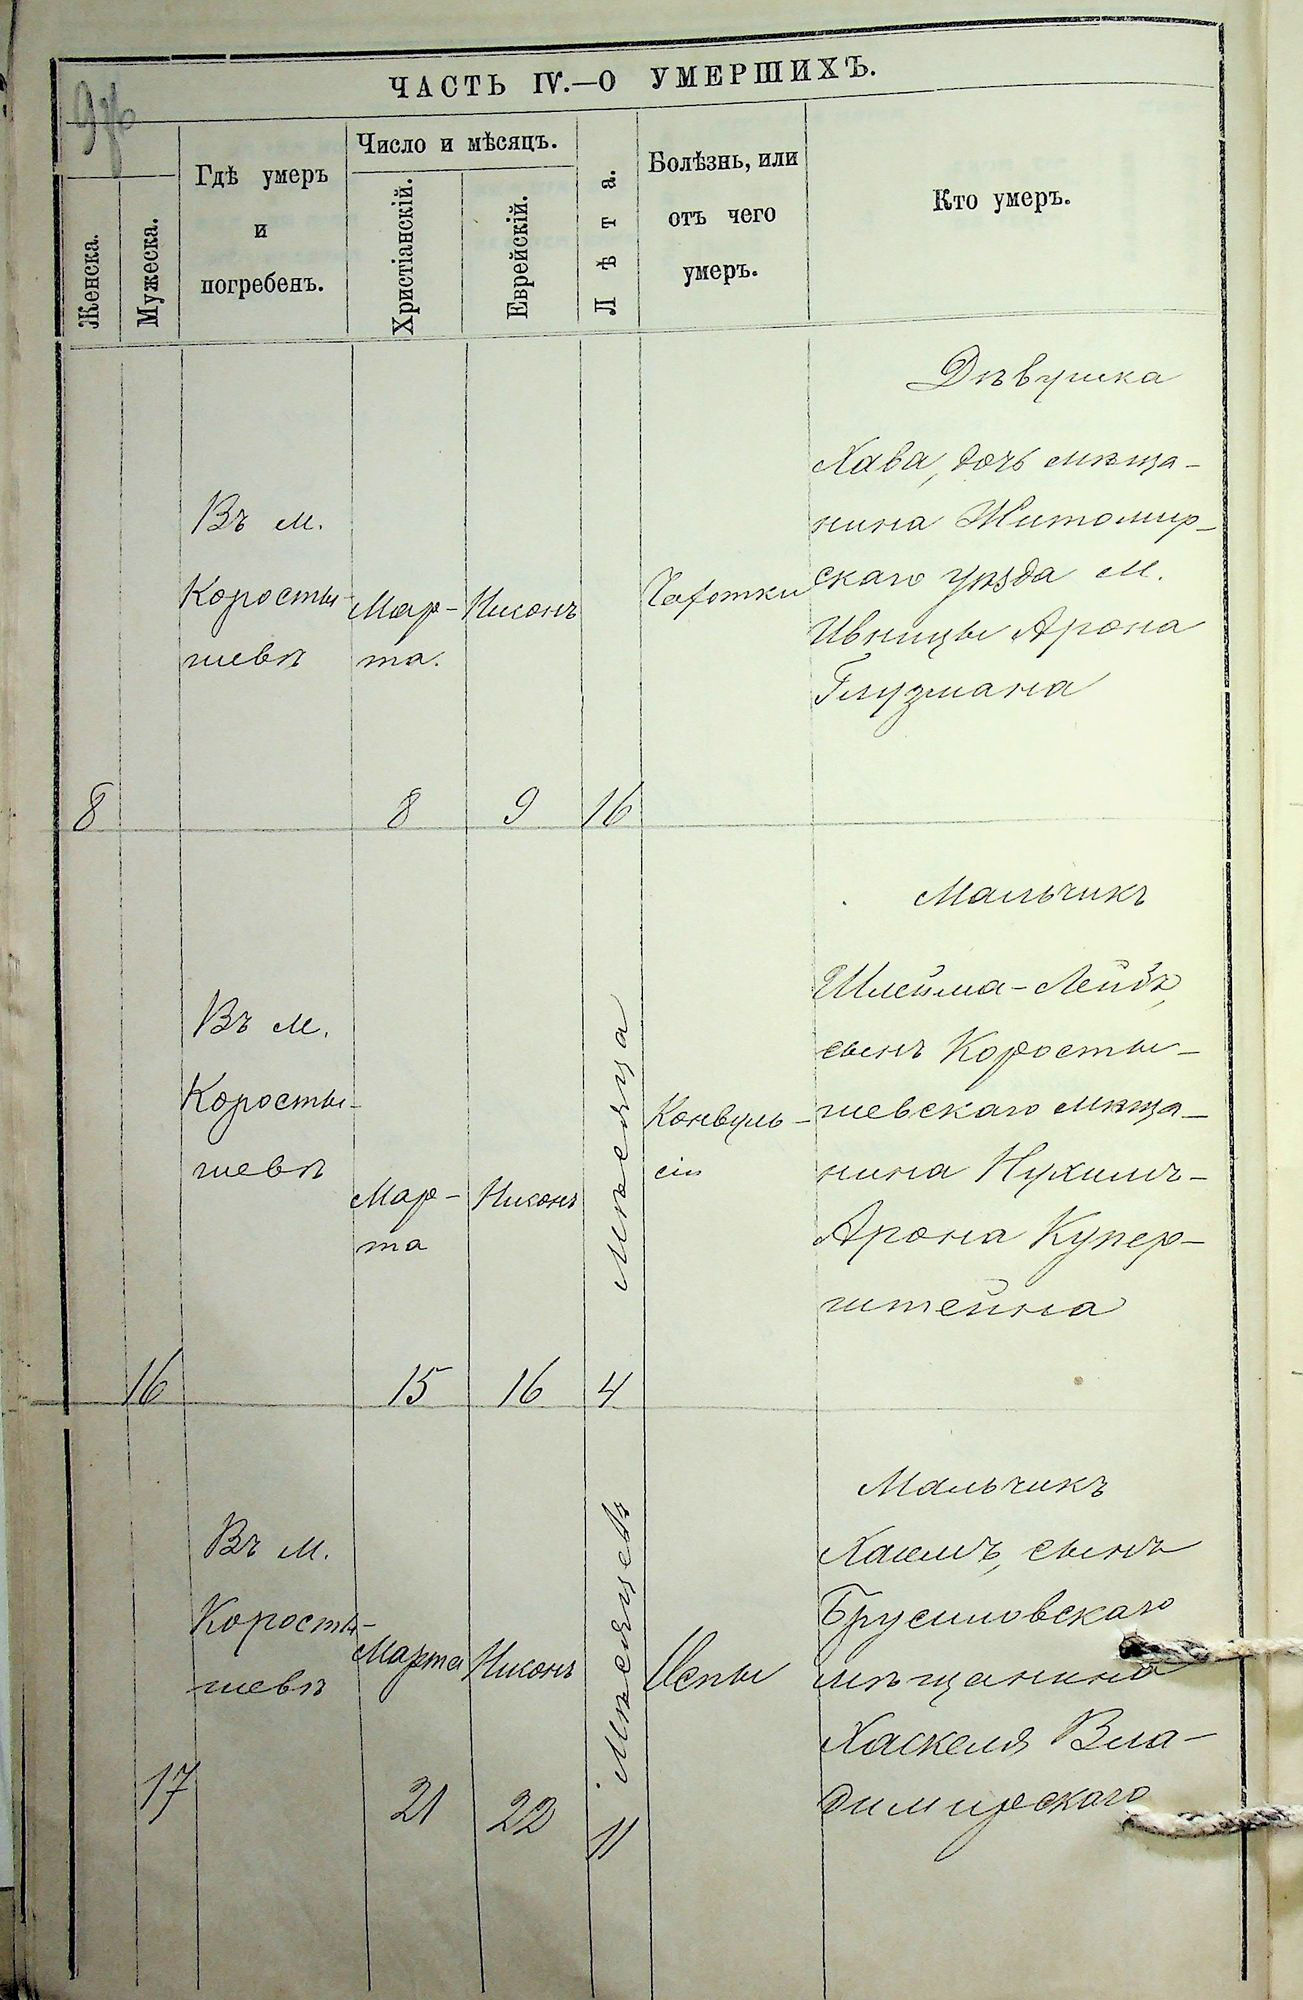 ЧАСТЬ IV.—О УМЕРШИХЪ.
Женска.
Мужеска.
Гдѣ умеръ
и
погребенъ.
Число и мѣсяцъ.
Христіанскій.
Еврейскій.
Лѣта.
Болѣзнь, или
отъ чего
умеръ.
Кто умеръ.
8
Въ м.
Коросты-
шевѣ
Мар-
та.
8
Нисонъ
9
16
Чахотки
Дѣвушка
Хава, дочь мѣща-
нина Житомир-
скаго уѣзда м.
Ивницы Арона
Глузмана
16
Въ м.
Коросты-
шевѣ
Мар-
та
15
Нисонъ
16
4
Мѣсяца
Конвуль-
сіи
Мальчикъ
Шлейма-Лейбъ,
сынъ Коросты-
шевскаго мѣща-
нина Нухимъ-
Арона Купер-
штейна
17
Въ м.
Коросты-
шевѣ
Марта
21
Нисонъ
22
11
Мѣсяцевъ
Оспы
Мальчикъ
Хаимъ, сынъ
Брусиловскаго
мѣщанина
Хаскеля Вла-
димирскаго